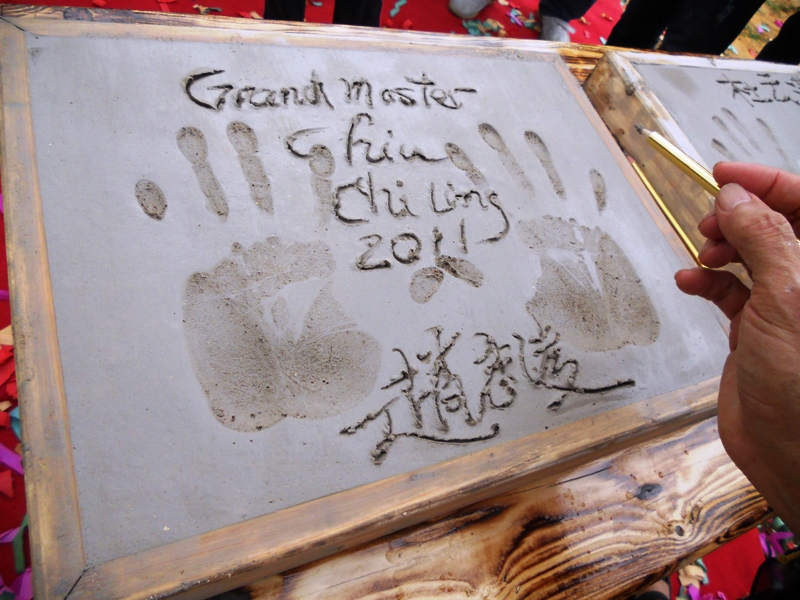 Grand Master
Chiu
Chi Ling
2011
趙志凌